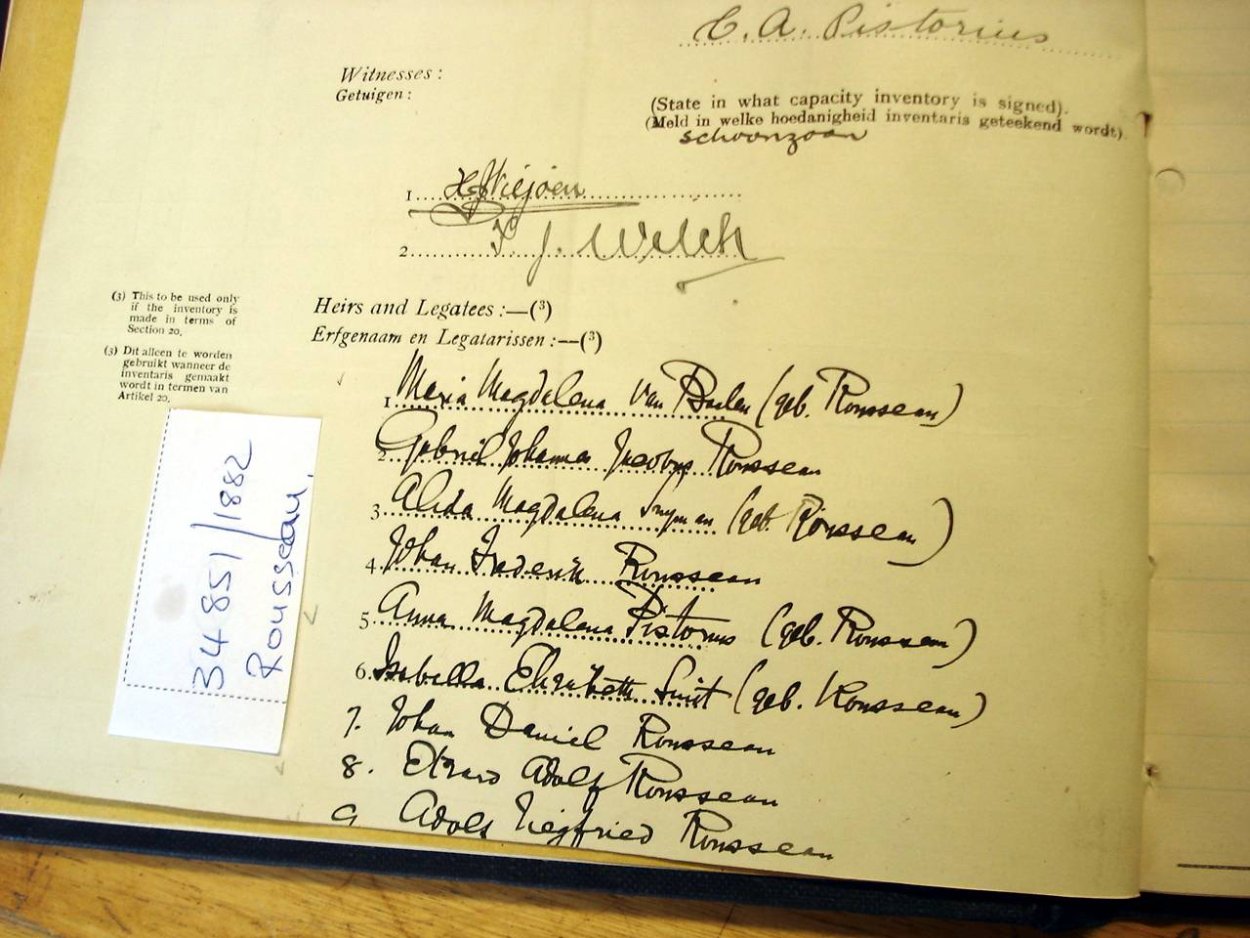 C. A. Pistorius
Witnesses :
Getuigen :
(State in what capacity inventory is signed).
(Meld in welke hoedanigheid inventaris geteekend wordt).
schoonzoon
1 Viljoen
2 J. Welch
(3) This to be used only
if the inventory is
made in terms of
Section 20.
Heirs and Legatees :—(3)
Erfgenaam en Legatarissen :—(3)
(3) Dit alleen te worden
gebruikt wanneer de
inventaris gemaakt
wordt in termen van
Artikel 20.
1 Maria Magdalena van (geb. Rousseau)
2 Gabriel Johannes Jacobus Rousseau
3 Alida Magdalena Snyman (geb. Rousseau)
4. Johan Frederik Rousseau
5. Anna Magdalena Pistorius (geb. Rousseau)
6. Isabella Elizabeth Smit (geb. Rousseau)
7. Johan Daniel Rousseau
8. Adolf Rousseau
9 Adolf Siegfried Rousseau
34 851/1882
Rousseau.